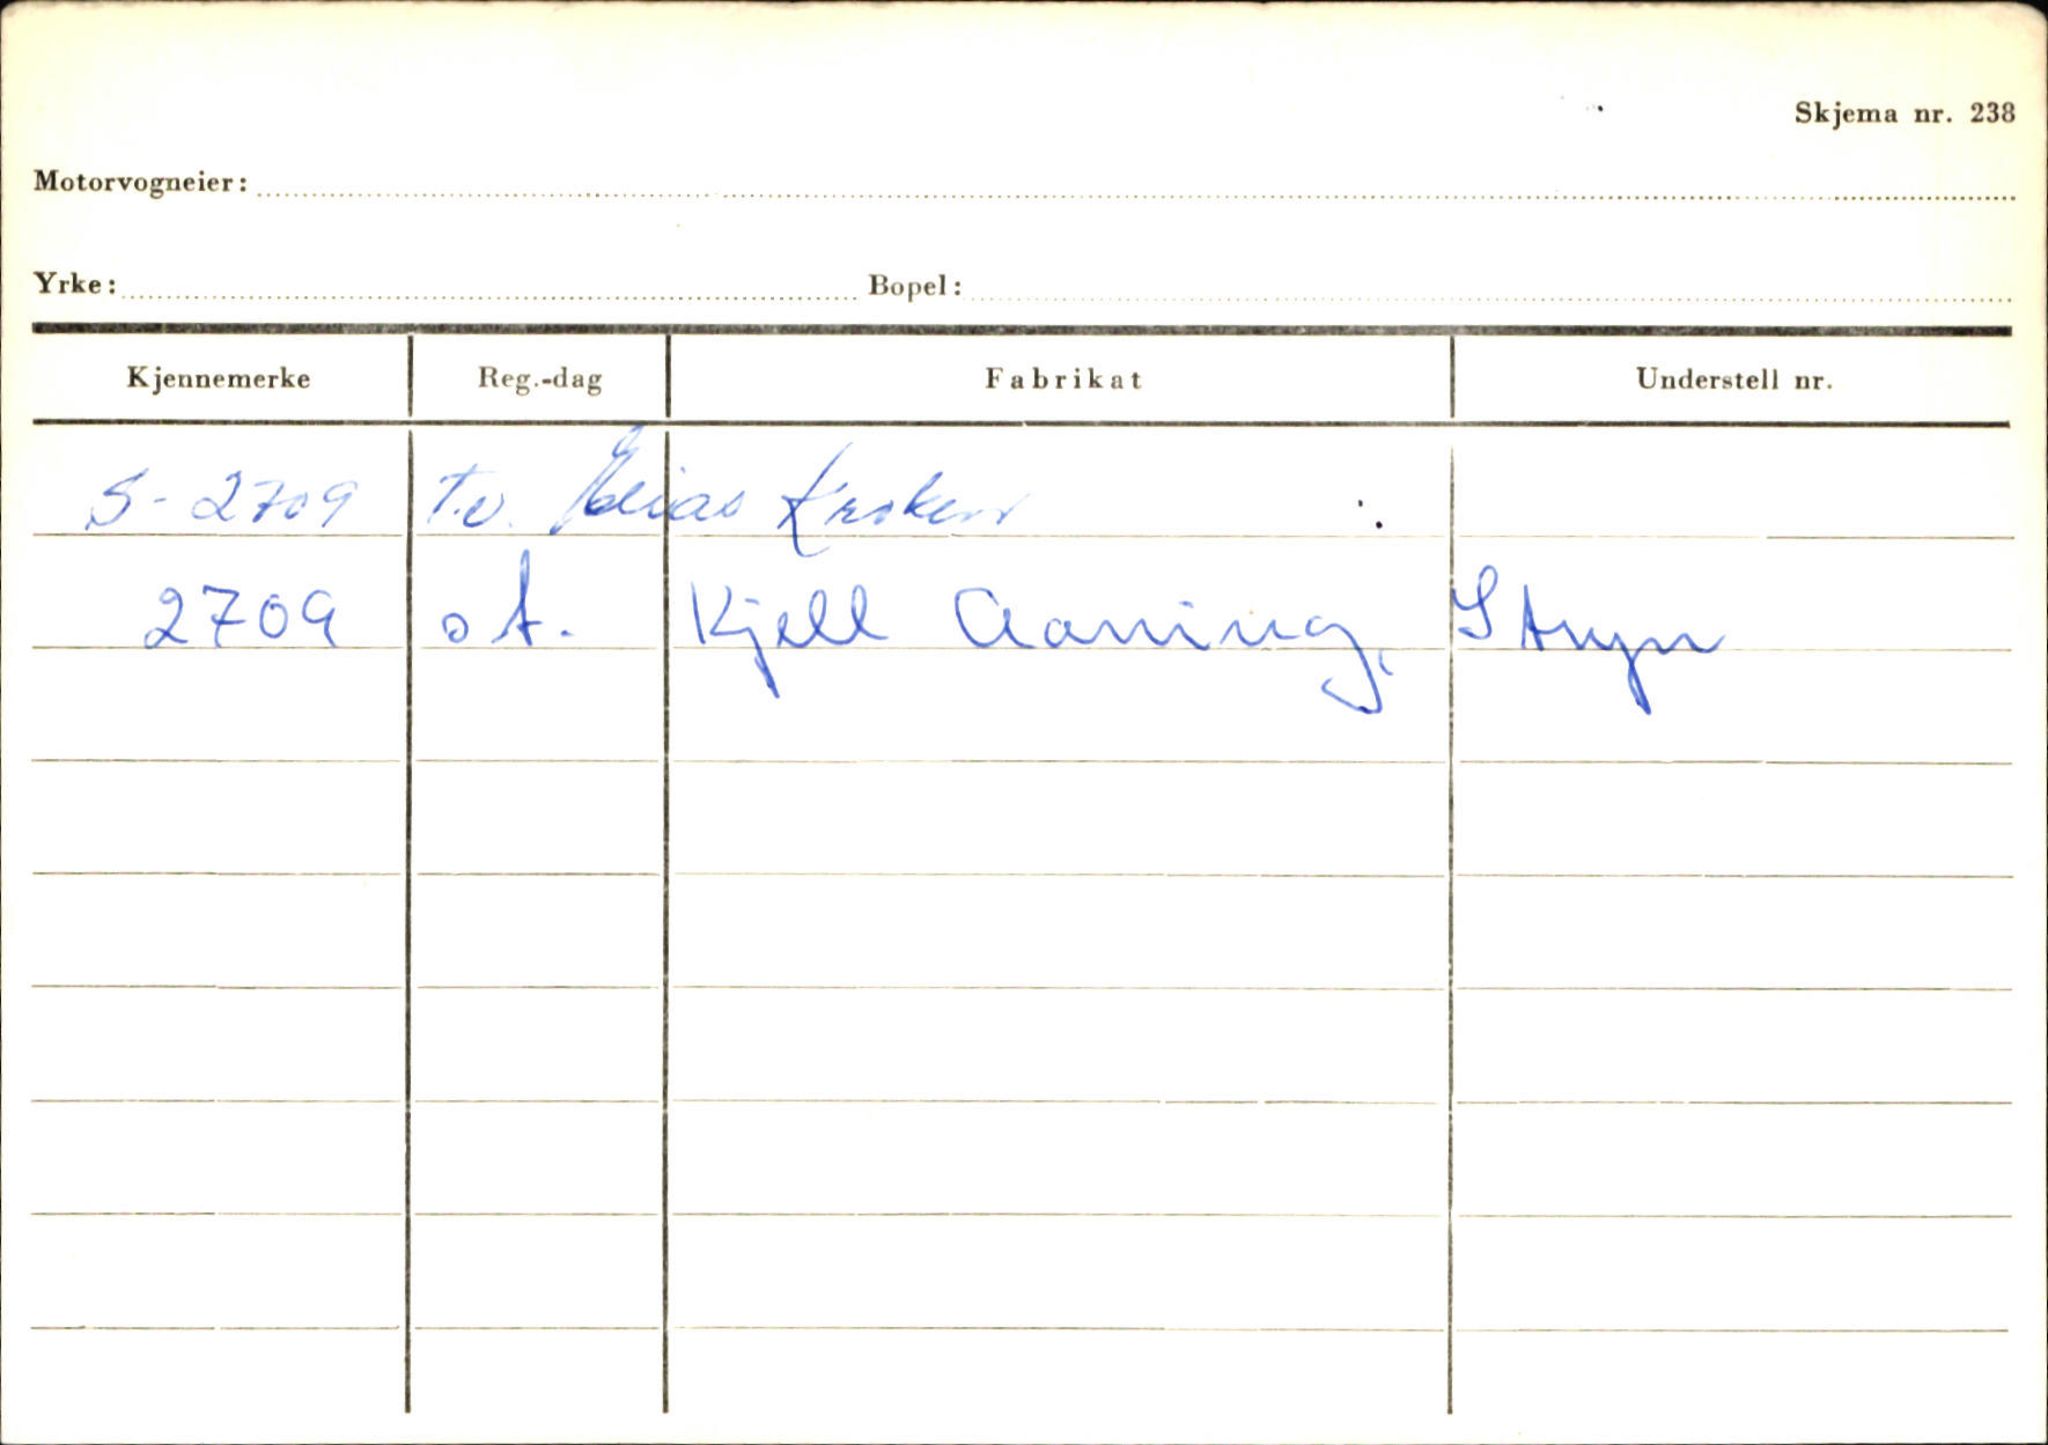 Skjema nr. 238
Motorvogneier:
Yrke: Bopel:
Kjennemerke Reg.-dag Fabrikat Understell nr.
S-2709 T.v. Elias Kroken
2709 o t. Kjell Aaning, Stryn